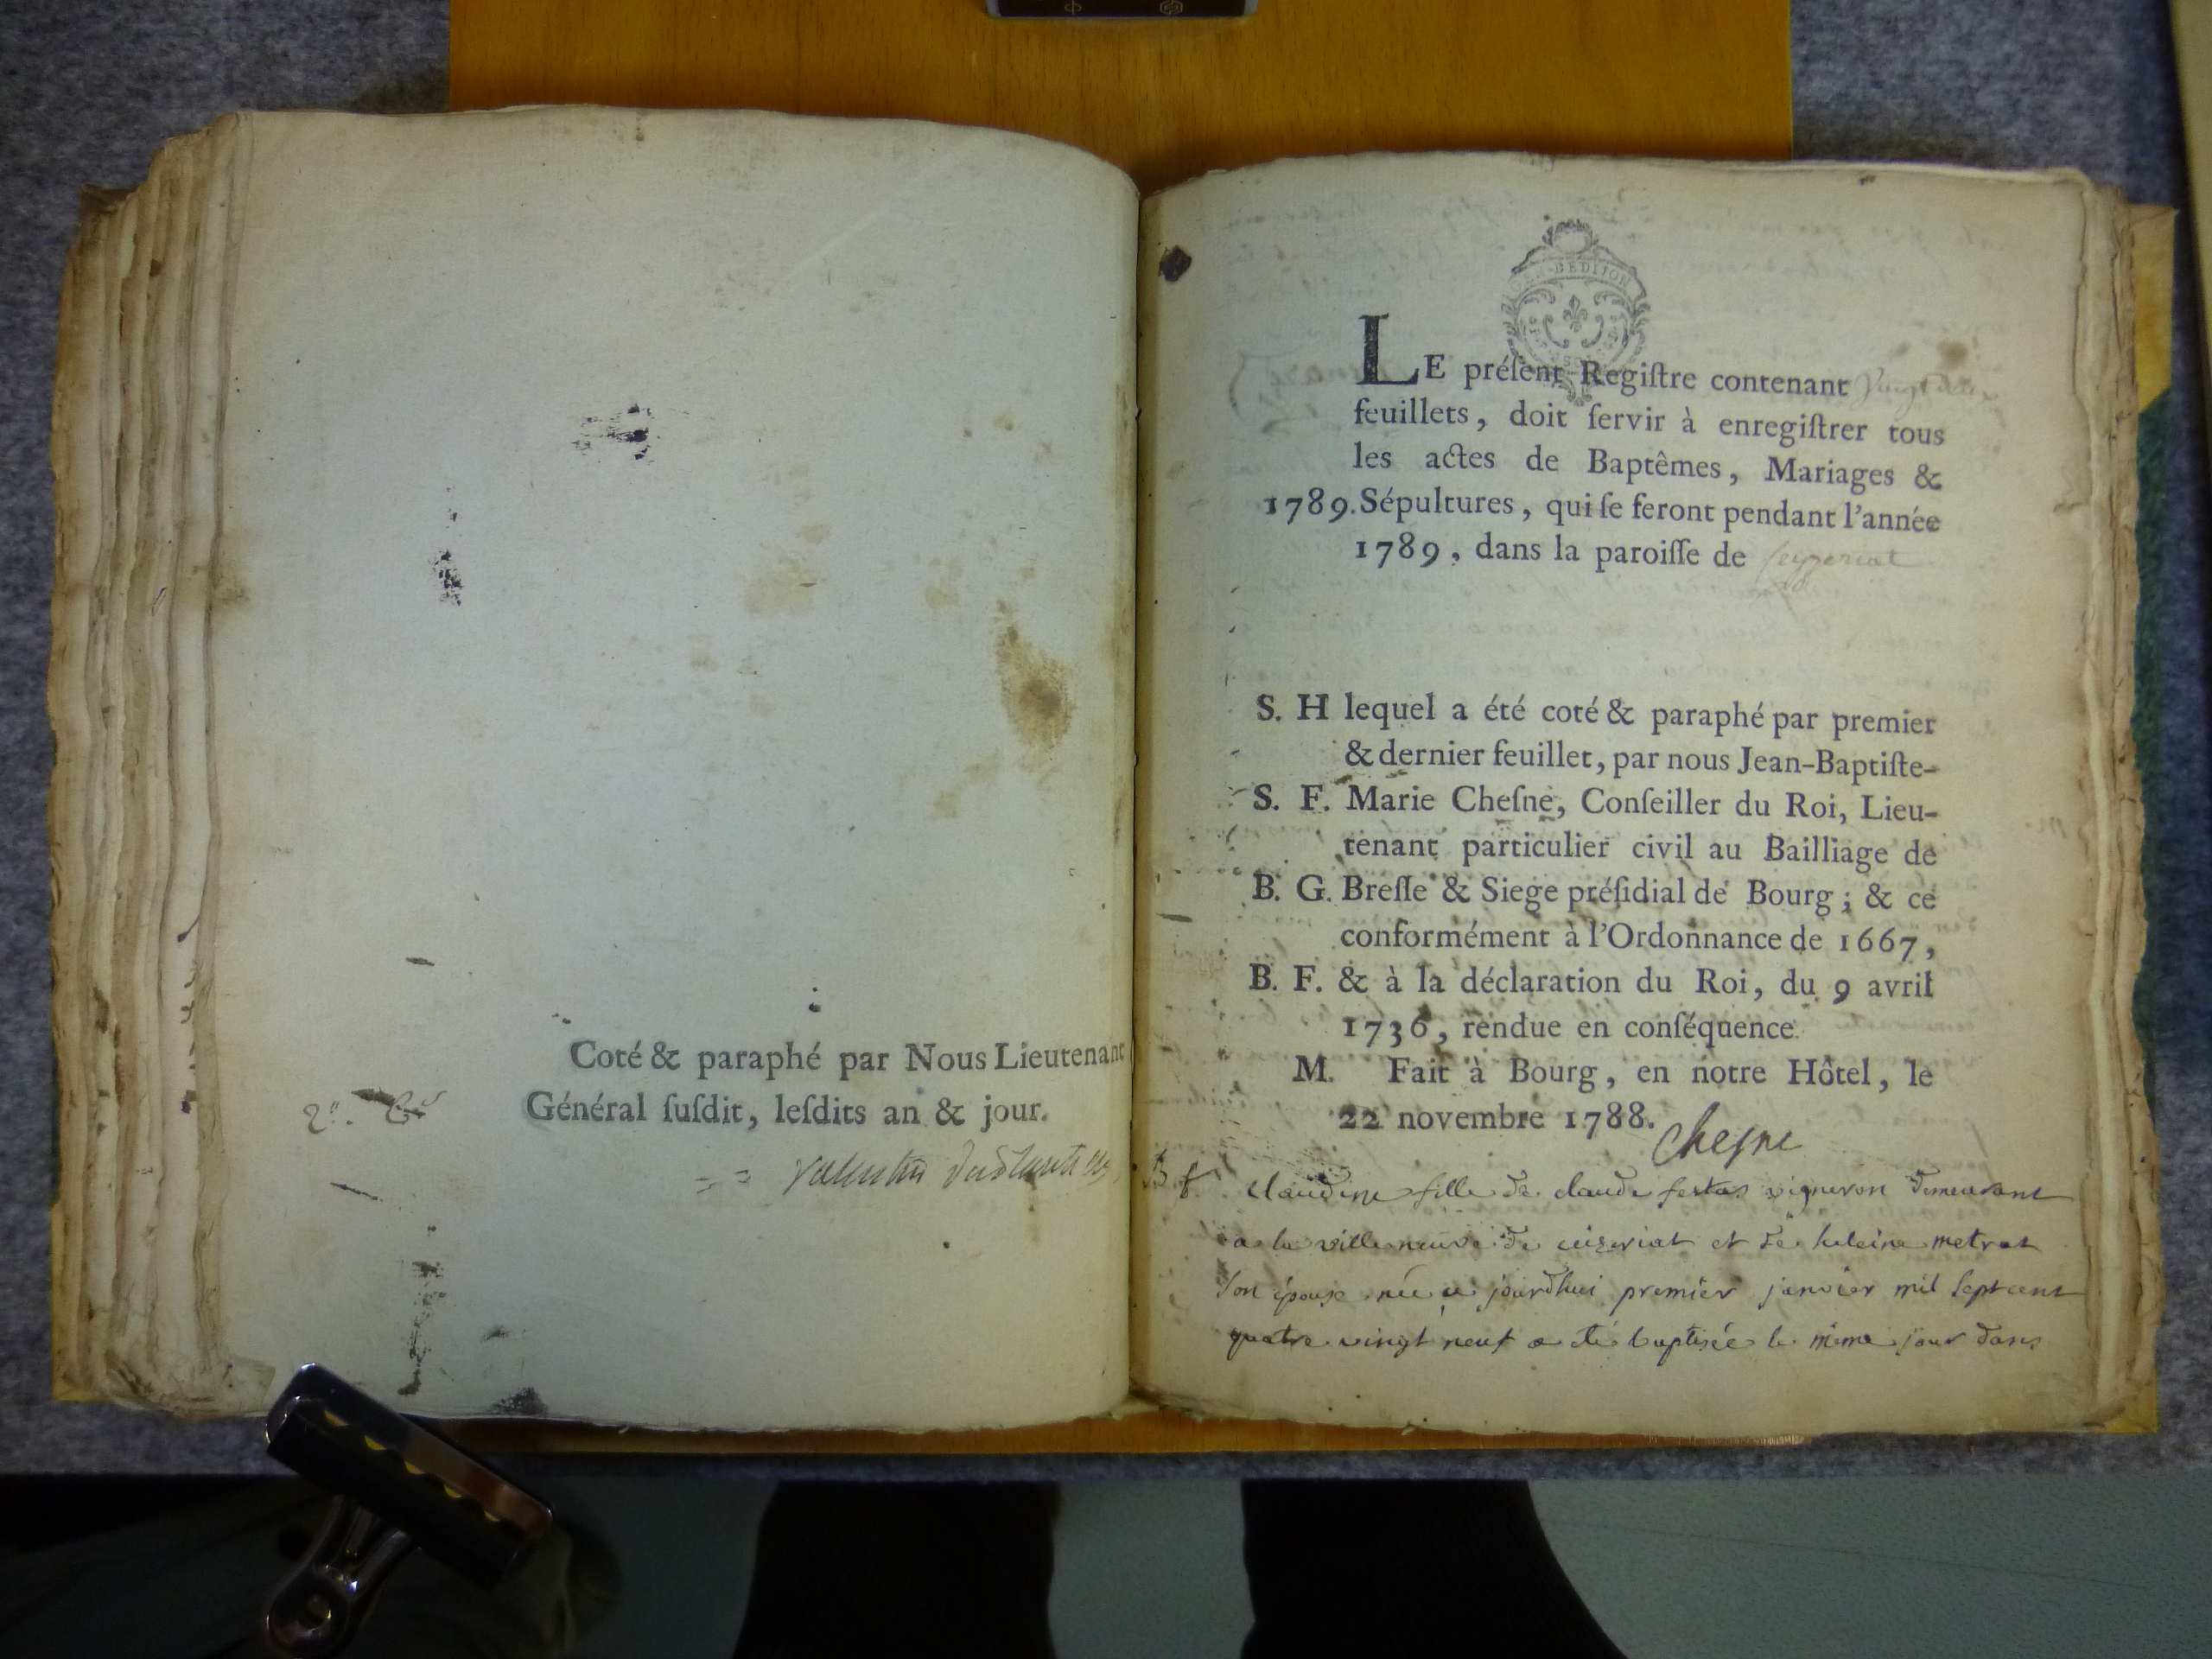 Coté & paraphé par Nous Lieutenant
Général ſuſdit, leſdits an & jour.
LE préſent Regiſtre contenant Vingt deux
feuillets, doit ſervir à enregiſtrer tous
les actes de Baptêmes, Mariages &
1789. Sépultures, qui ſe feront pendant l'année
1789, dans la paroiſſe de ceyzeriat
S. H lequel a été coté & paraphé par premier
& dernier feuillet, par nous Jean-Baptiſte-
S. F. Marie Cheſne, Conſeiller du Roi, Lieu-
tenant particulier civil au Bailliage de
B. G. Breſſe & Siege préſidial de Bourg; & ce
conformément à l'Ordonnance de 1667,
B. F. & à la déclaration du Roi, du 9 avril
1736, rendue en conſéquence.
M. Fait à Bourg, en notre Hôtel, le
22 novembre 1788.
Chesne
B f claudine fille de claude festas vigneron demeurant
a la ville neuve de ceizeriat et de heleine metrat
son épouse née au jourdhui premier janvier mil sept cent
quatre vingt neuf a été baptisée le même jour dans